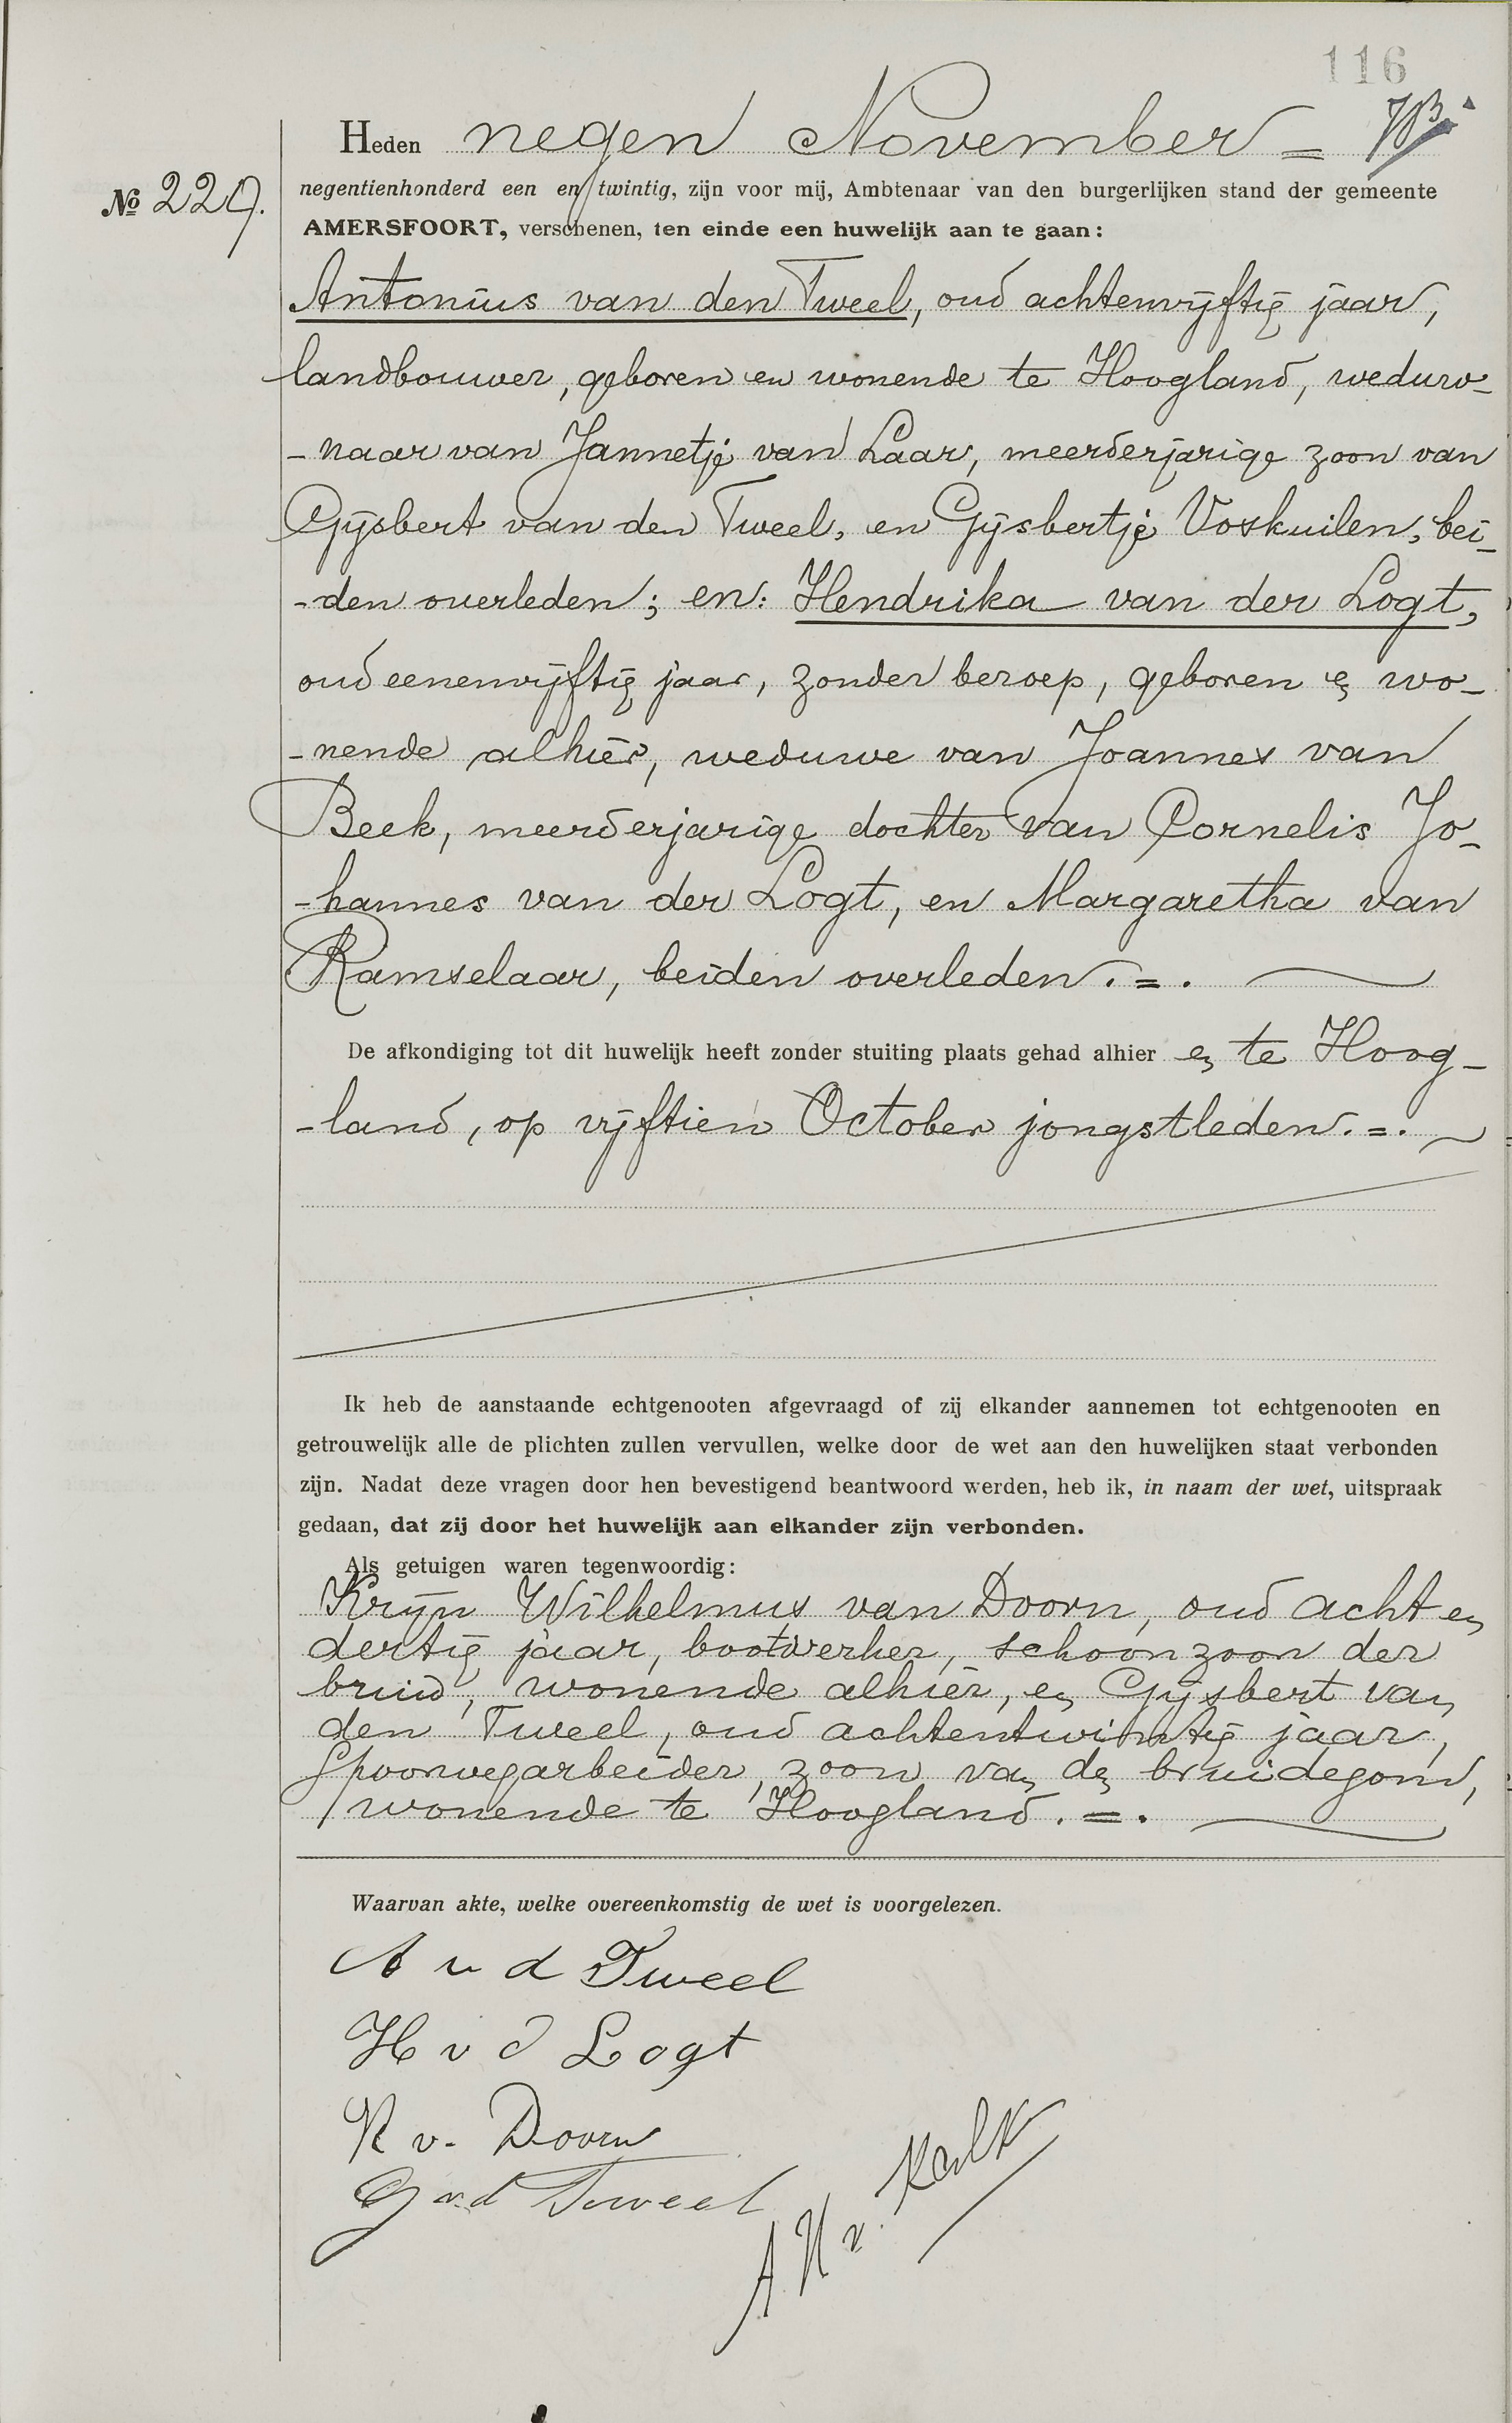 116
Heden negen November =
No 229.
negentienhonderd een en twintig, zijn voor mij, Ambtenaar van den burgerlijken stand der gemeente
AMERSFOORT, verschenen, ten einde een huwelijk aan te gaan:
Antonius van den Tweel, oud achtenvijftig jaar,
landbouwer, geboren en wonende te Hoogland, weduw-
-naar van Jannetje van Laar, meerderjarige zoon van
Gijsbert van den Tweel, en Gijsbertje Voskuilen, bei-
-den overleden; en: Hendrika van der Logt,
oud eenenvijftig jaar, zonder beroep, geboren en wo-
-nende alhier, weduwe van Joannes van
Beek, meerderjarige dochter van Cornelis Jo-
-hannes van der Logt, en Margaretha van
Ramselaar, beiden overleden. = .
De afkondiging tot dit huwelijk heeft zonder stuiting plaats gehad alhier en te Hoog-
-land, op vijftien October jongstleden. = .
Ik heb de aanstaande echtgenooten afgevraagd of zij elkander aannemen tot echtgenooten en
getrouwelijk alle de plichten zullen vervullen, welke door de wet aan den huwelijken staat verbonden
zijn. Nadat deze vragen door hen bevestigend beantwoord werden, heb ik, in naam der wet, uitspraak
gedaan, dat zij door het huwelijk aan elkander zijn verbonden.
Als getuigen waren tegenwoordig:
Krijn Wilhelmus van Doorn, oud acht en
dertig jaar, bootwerker, schoonzoon der
bruid, wonende alhier, en Gijsbert van
den Tweel, oud achtentwintig jaar,
Spoorwegarbeider, zoon van den bruidegom,
wonende te Hoogland. = .
Waarvan akte, welke overeenkomstig de wet is voorgelezen.
A v d Tweel
H v d Logt
K v. Doorn
G v d Tweel
A H v. Kalk